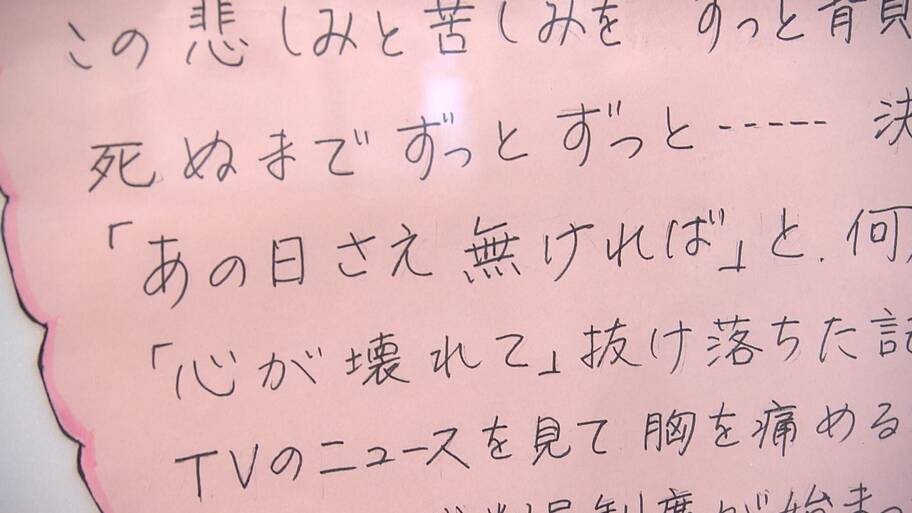 この悲しみと苦しみを ずっと背負
死ぬまでずっとずっと‥‥‥決
「あの日さえ無ければ」と、何
「心が壊れて」抜け落ちた記
TVのニュースを見て胸を痛める
制度が始まっ